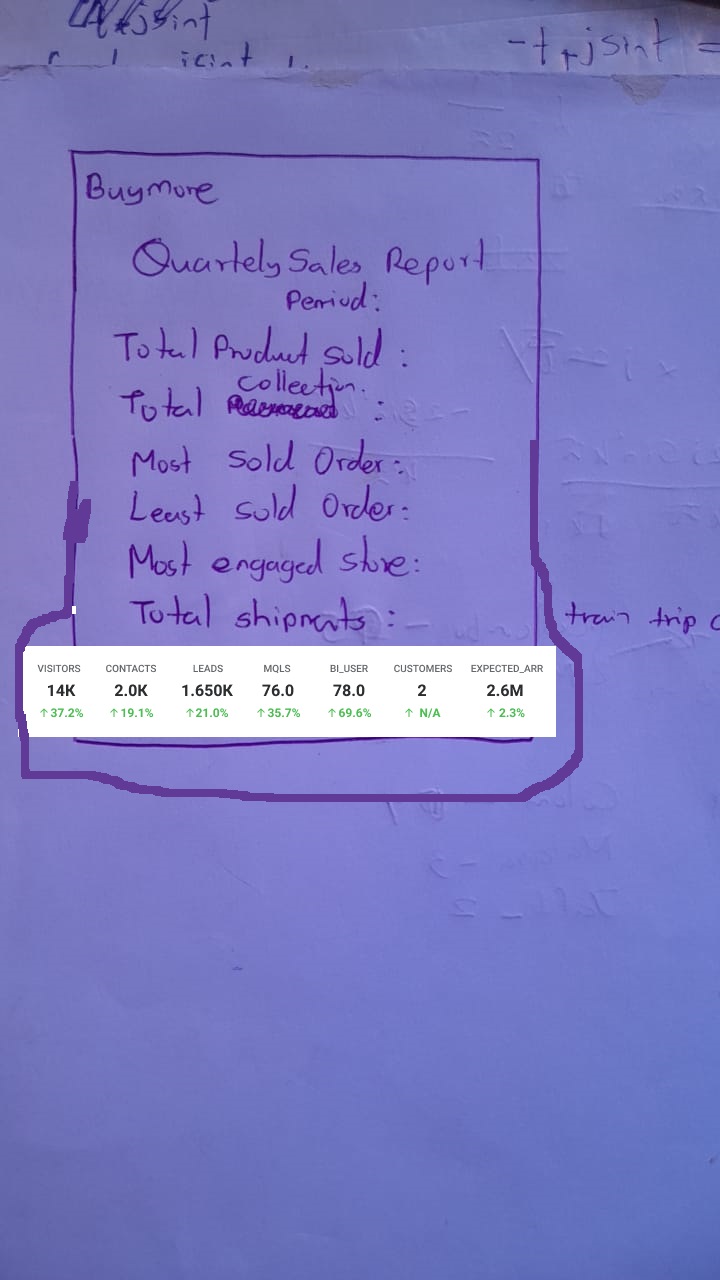 -t+jsint =
Buymore
Quartely Sales Report
Period:
Total Product sold :
collection.
Total :
Most Sold Order:
Least Sold Order:
Most engaged store:
Total shipments :
train trip
VISITORS CONTACTS LEADS MQLS BI_USER CUSTOMERS EXPECTED_ARR
14K 2.0K 1.650K 76.0 78.0 2 2.6M
↑37.2% ↑19.1% ↑21.0% ↑35.7% ↑69.6% ↑ N/A ↑ 2.3%